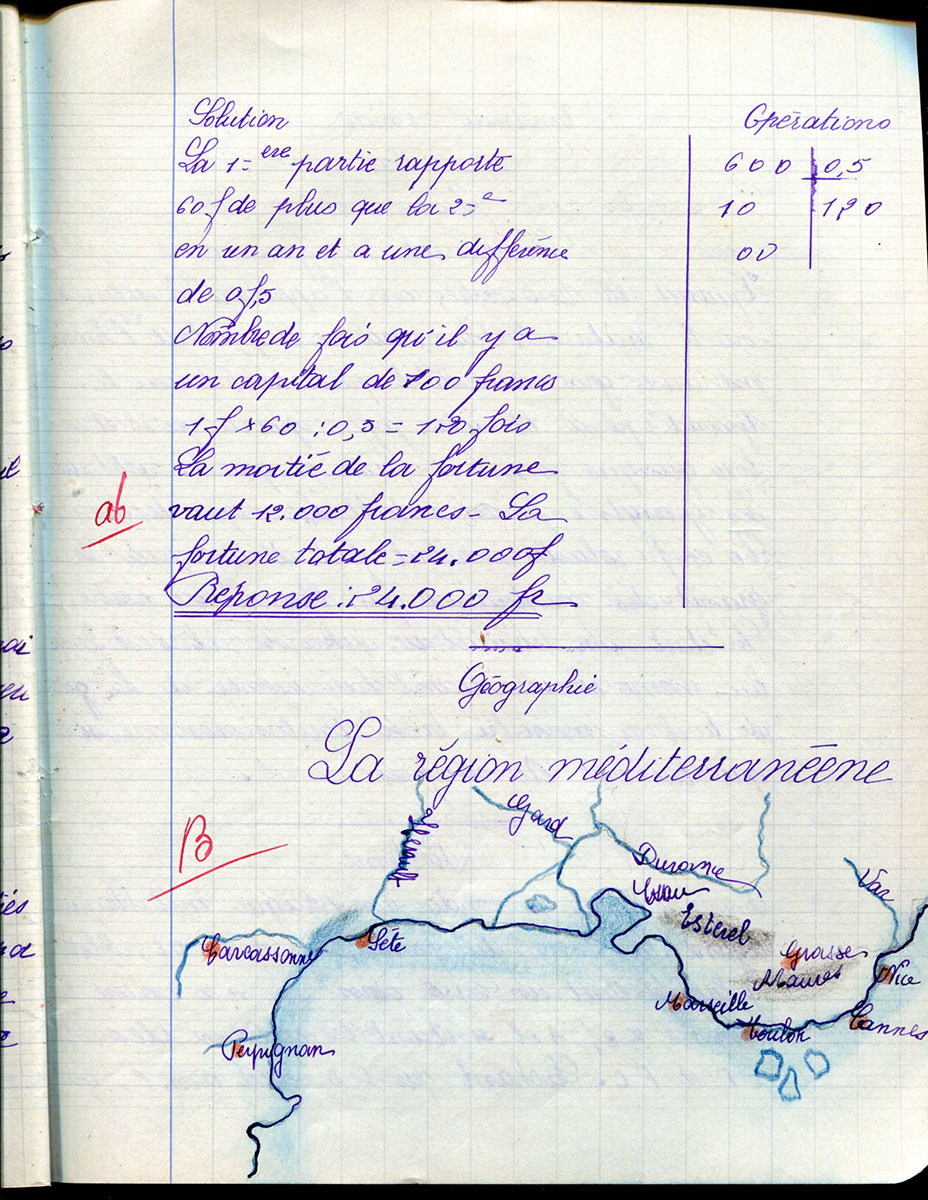 Solution
La 1=ere partie rapporte
60f de plus que la 2=e
en un an et a une différence
de 0f,5
Nombre de fois qu'il y a
un capital de 100 francs
1f × 60 : 0,5 = 120 fois
La moitié de la fortune
vaut 12.000 francs - La
fortune totale = 24.000f
Réponse : 24.000 fr
Opérations
600 0,5
10 120
00
ab
Géographie
La région méditerranéene
B
Hérault
Gard
Durance
Var
Esterel
Carcassonne
Sète
Grasse
Maures
Nice
Marseille
Toulon
Cannes
Perpignan